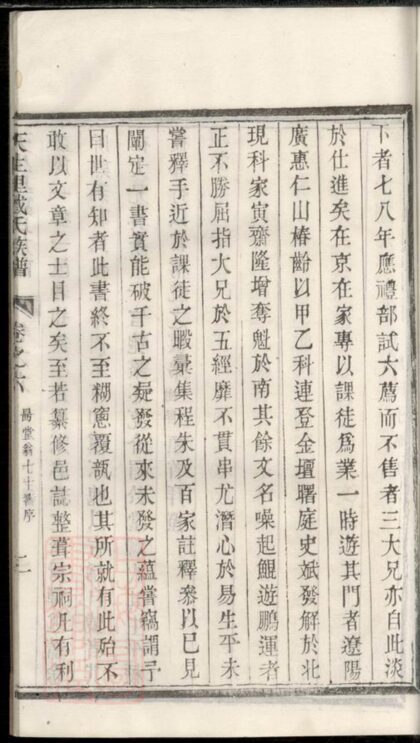 下者七八年應禮部試六薦而不售者三大兄亦自此淡
於仕進矣在京在家專以課徒爲業一時遊其門者遼陽
廣惠仁山椿齡以甲乙科連登金壇曙庭史斌發解於北
現科家寅齋隆增奪魁於南其餘文名噪起鯤遊鵬運者
正不勝屈指大兄於五經靡不貫串尤潛心於易生平未
嘗釋手近於課徒之暇彙集程朱及百家註釋叅以已見
闡定一書實能破千古之疑發從來未發之蘊嘗竊謂予
曰世有知者此書終不至糊窻覆瓿也其所就有此殆不
敢以文章之士目之矣至若纂修邑誌整葺宗祠凡有利
天生里戴氏族譜 卷之六 堂翁七十壽序